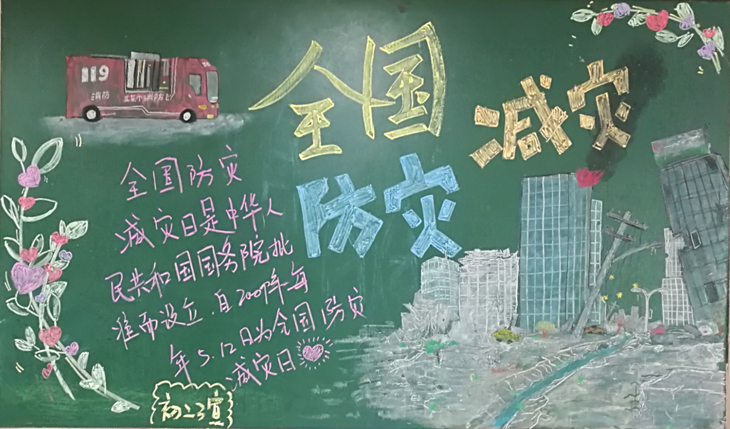 119
消防
全国
减灾
防灾
全国防灾
减灾日是中华人
民共和国国务院批
准而设立.自2009年每
年5.12日为全国防灾
减灾日